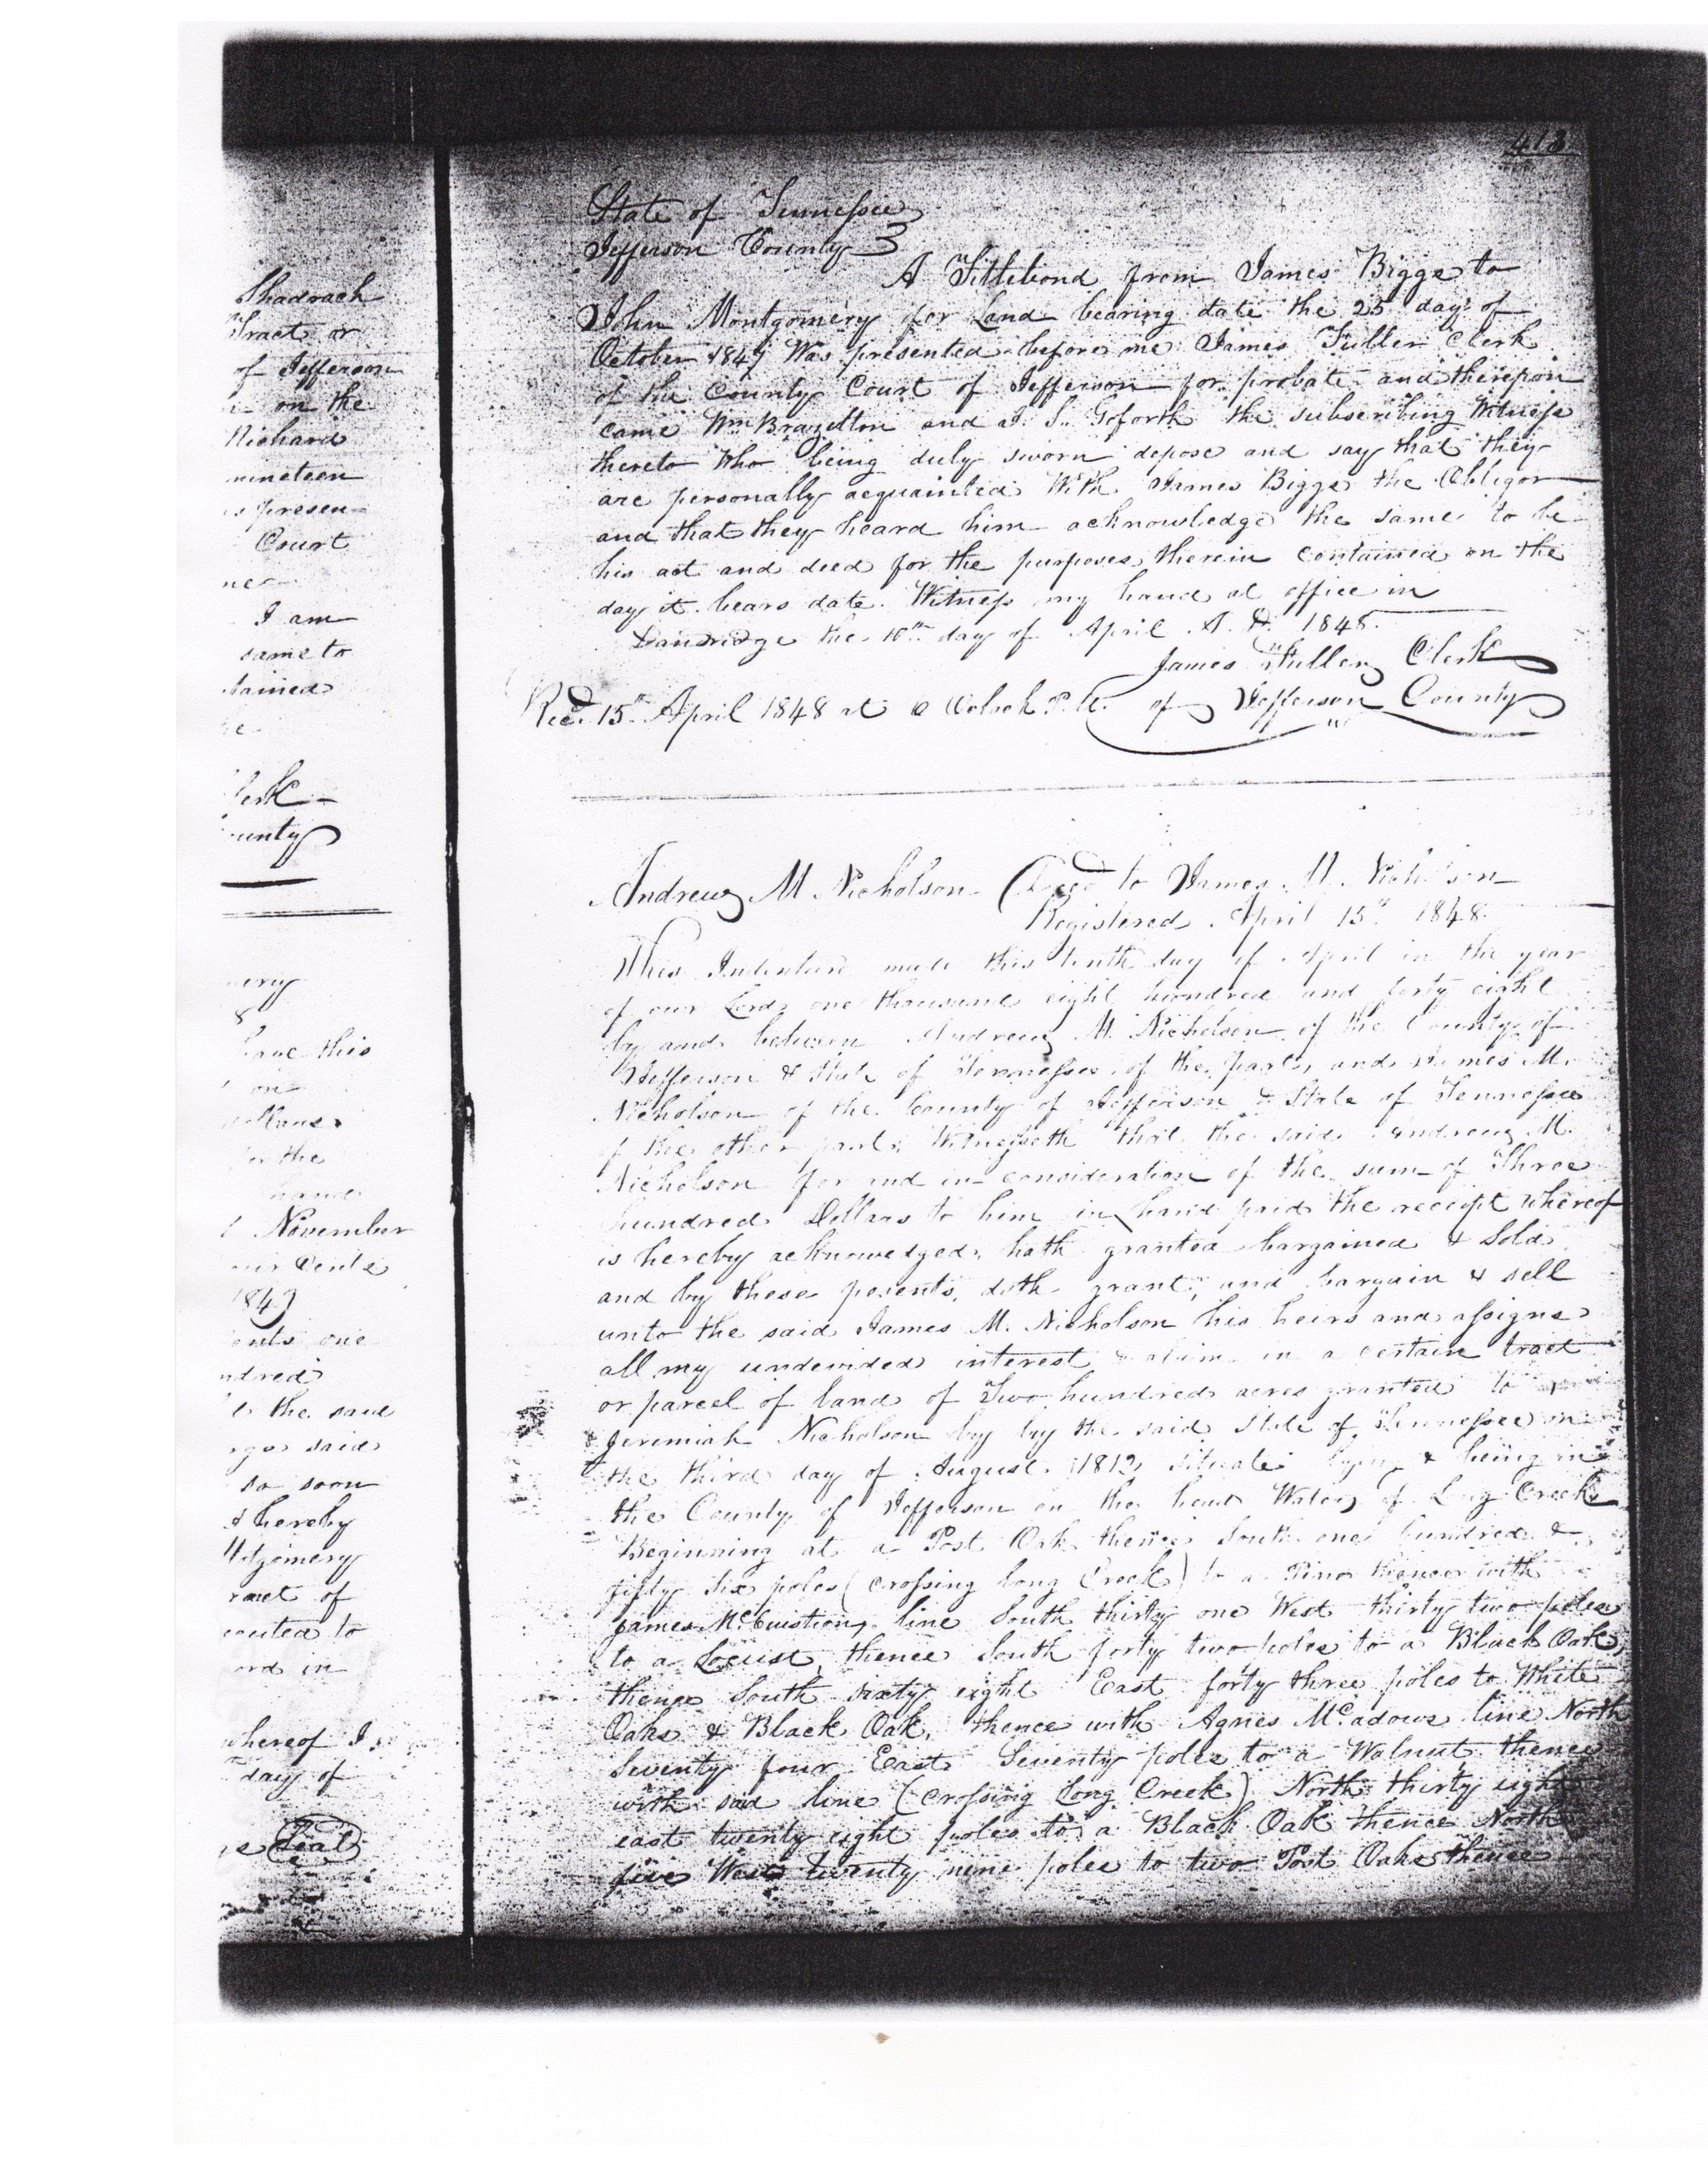 Shadrach
Tract or
of Jefferson
on the
Richard
nineteen
presen-
Court
I am
same to
tained
lerk
unty
8
this
on
for the
November
Cents
184
one
ndred
the said
said
so soon
& hereby
tgomery
ract of
to
ord in
whereof I
day of
Seal
413
State of Tennessee
Jefferson County
A Titlebond from James Biggs to
John Montgomery for Land bearing date the 25 day of
October 1847 Was presented before me James Fuller Clerk
of the County Court of Jefferson for probate and therepon
came Wm Brazelton and S. Goforth the subscribing Witness
thereto Who being duly sworn depose and say that they
are personally acquainted With James Biggs the Obligor
and that they heard him acknowledge the same to be
his act and deed for the purposes therein contained on the
day it bears date. Witness my hand at office in
Dandridge the 10th day of April A. D. 1848.
James Fuller Clerk
of Jefferson County
Recd. 15th April 1848 at Oclock P.M.
Andrew M Nicholson Deed to James M. Nicholson
Registered April 15th 1848.
This Indenture made this tenth day of April in the year
of our Lord one thousand eight hundred and forty eight
by and between Andrew M. Nicholson of the County of
Jefferson & State of Tennessee of the part, and James M.
Nicholson of the County of Jefferson & State of Tennessee
of the other part, Witnesseth that the said Andrew M.
Nicholson for and in consideration of the sum of Three
hundred Dollars to him in hand paid the receipt whereof
is hereby acknowledged, hath granted bargained & Sold
and by these presents, doth grant, and bargain & sell
unto the said James M. Nicholson his heirs and assigns
all my undevided interest & claim in a certain tract
or parcel of land of Two hundred acres granted to
Jeremiah Nicholson by by the said State of Tennessee on
the third day of August 1812, situate lying & being in
the County of Jefferson on the head Waters of Long Creek
Beginning at a Post Oak thence South one hundred &
fifty Six poles (crossing long Creek) to a Pine thence with
James McCuistion, line South thirty one West thirty two poles
to a Locust, thence South forty two poles to a Black Oak,
thence South sixty eight East forty three poles to White
Oaks & Black Oak, thence with Agnes McAdows line North
Seventy four East Seventy poles to a Walnut thence
with said line (crossing Long Creek) North thirty eight
east twenty eight poles to a Black Oak thence North
five West twenty nine poles to two Post Oaks thence